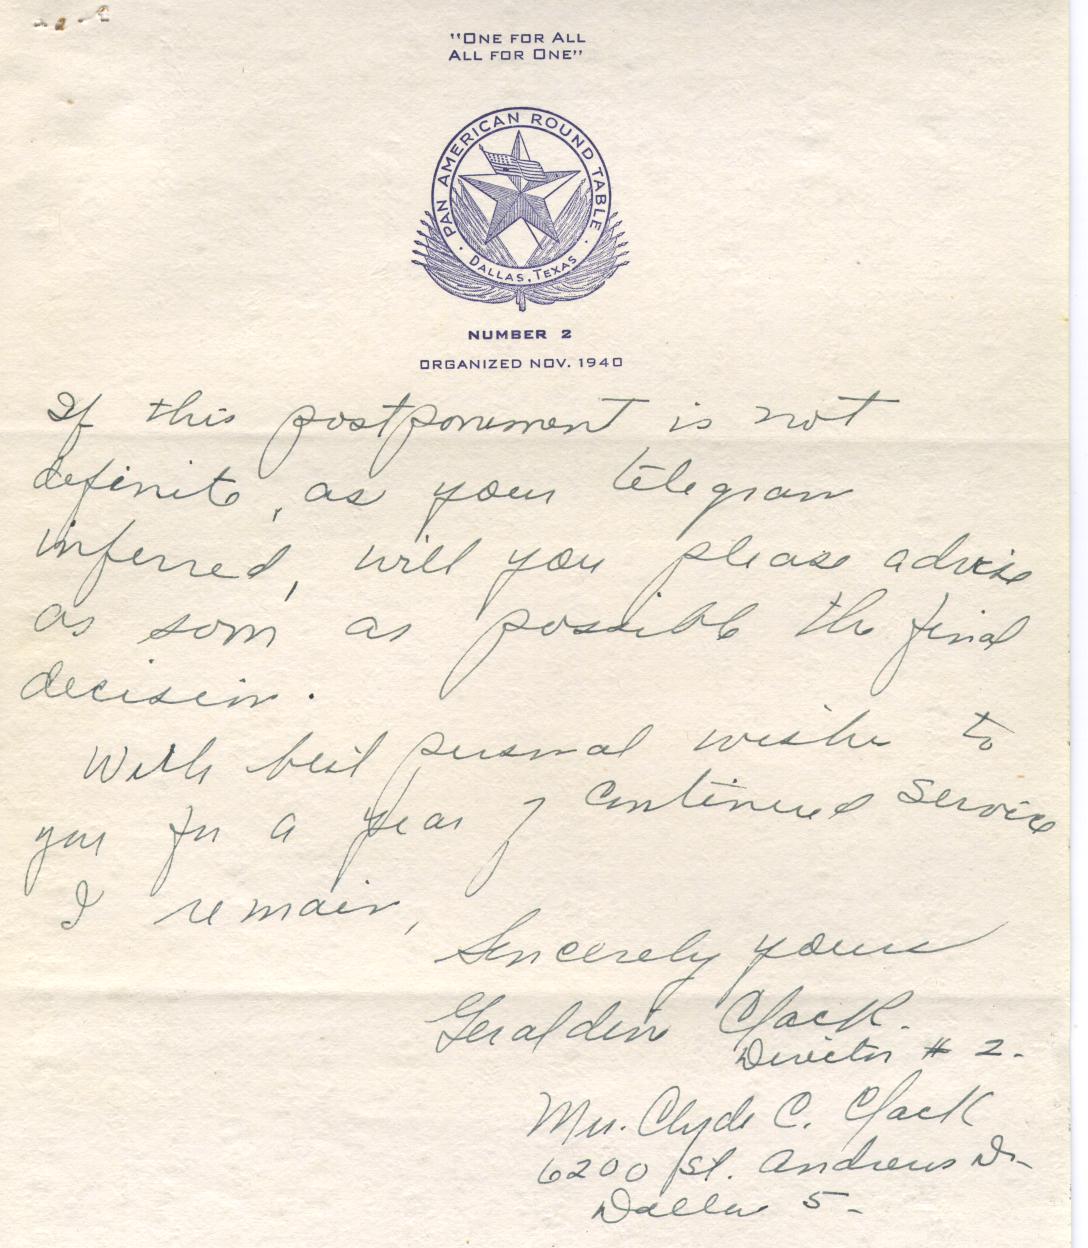 "ONE FOR ALL
ALL FOR ONE"
PAN AMERICAN ROUND TABLE
DALLAS, TEXAS
NUMBER 2
ORGANIZED NOV. 1940
If this postponement is not
definite, as your telegram
inferred, will you please advise
as soon as possible the final
decision.
With best personal wishes to
you for a year of continued service
I remain,
Sincerely yours
Geraldine Clack.
Director # 2.
Mrs. Clyde C. Clack
6200 St. Andrews Dr
Dallas 5-